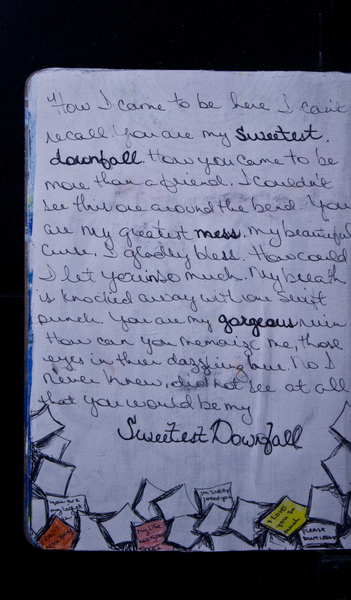 How I came to be here I can't
recall. You are my sweetest
downfall How you came to be
more than a friend. I couldn't
see this one around the bend. You
are my greatest mess. my beautiful
curse, I gladly bless. How could
I let you in so much. My breath
is knocked away with one swift
punch. You are my gorgeous ruin
How can you memorize me, those
eyes in their dazzling hue. No I
never knew, did not see at all
that you would be my
Sweetest Downfall
I'M SORRY
I loved you
you so
much
PLEASE
DON'T LEAVE